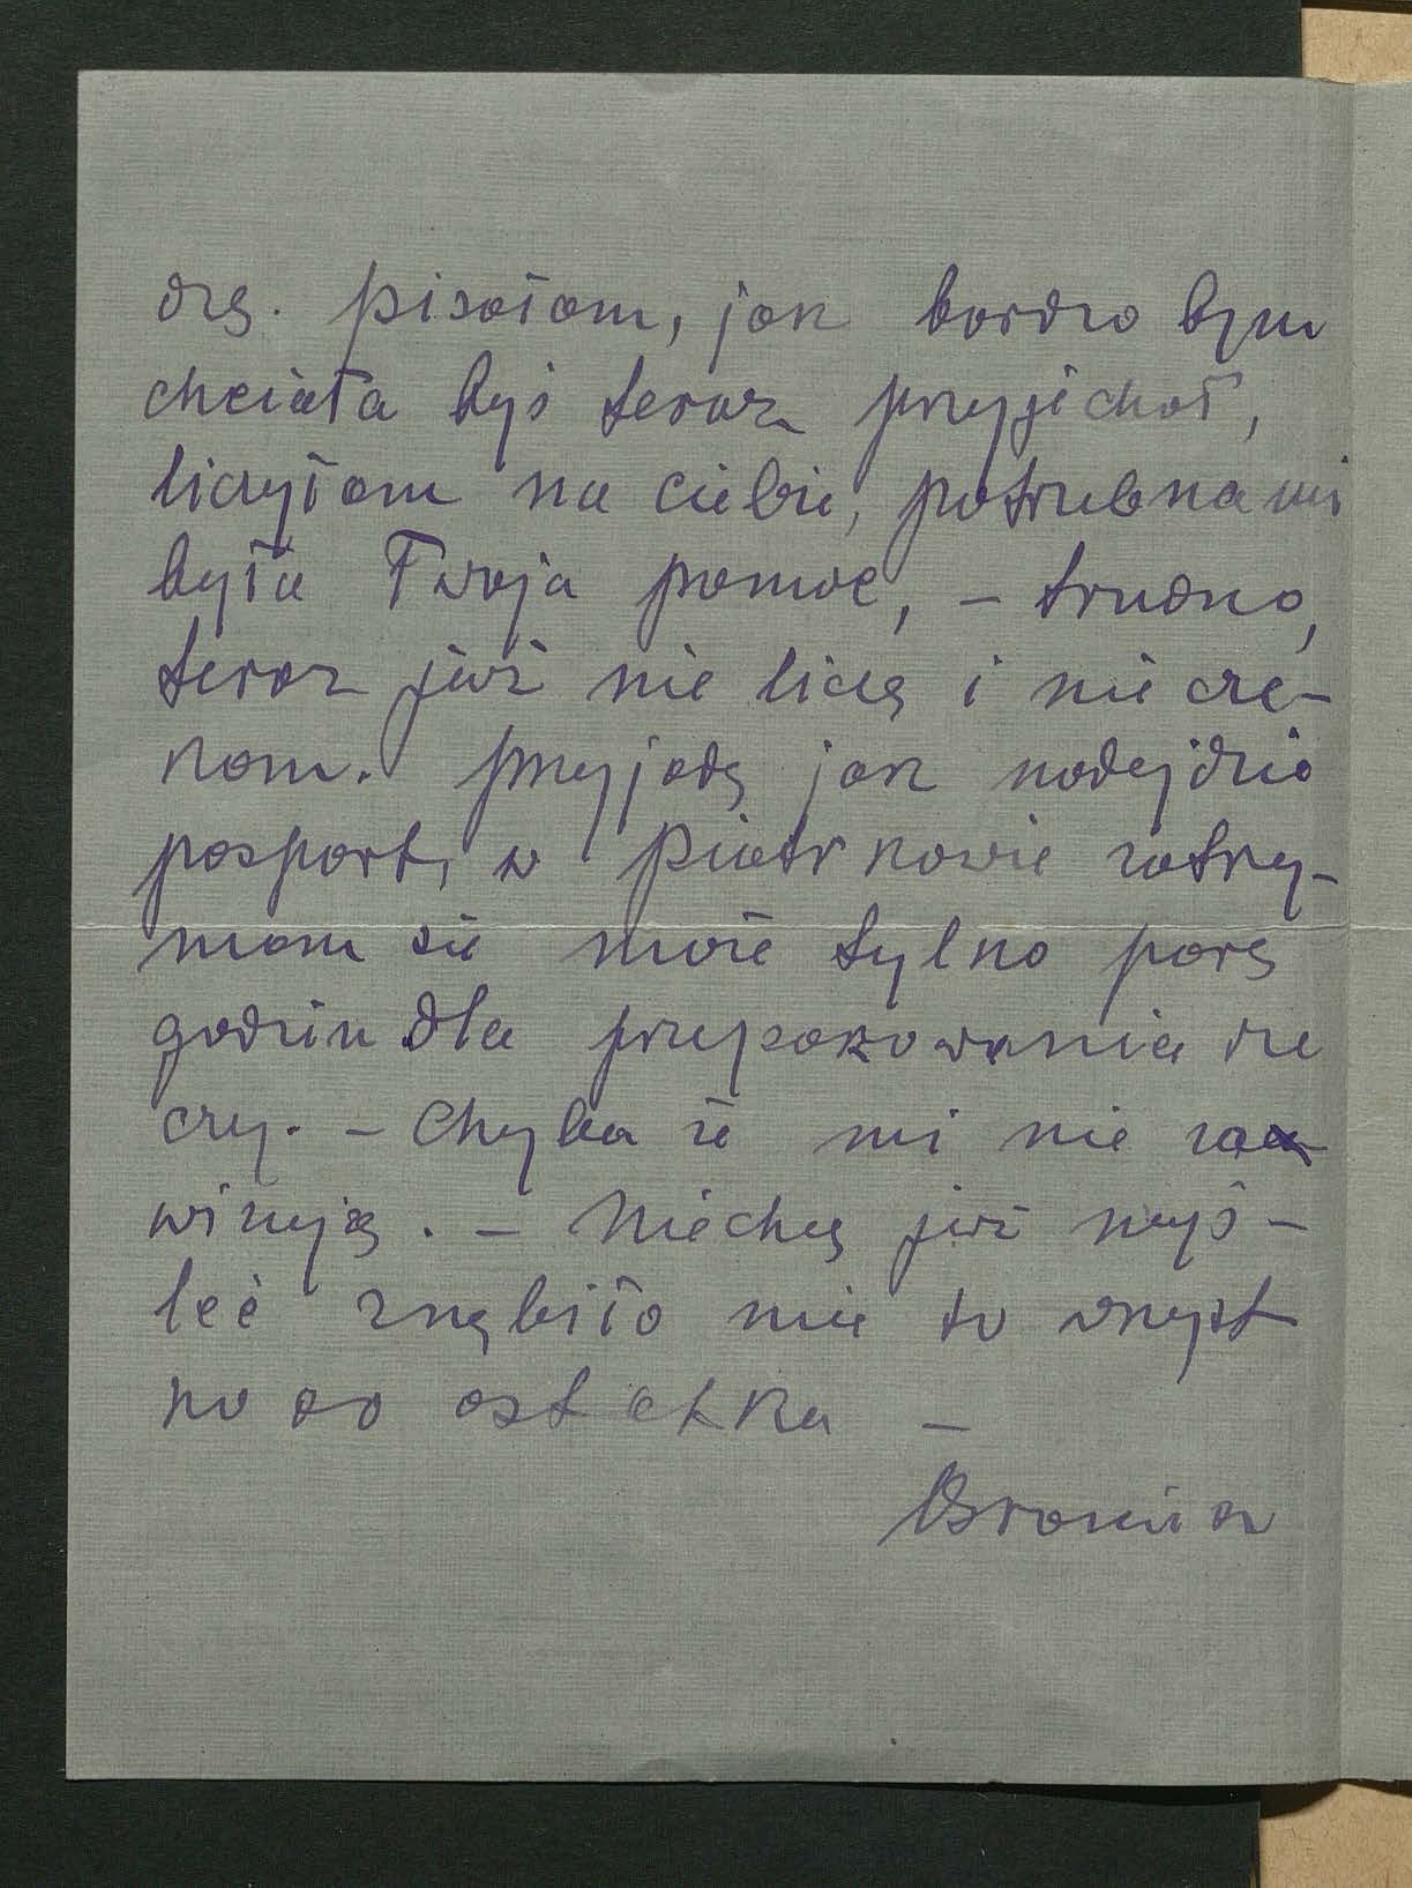 dzę. pisałam, jak bardzo bym
chciała byś teraz przyjechał,
liczyłam na ciebie, potrzebna mi
była Twoja pomoc, – trudno,
teraz już nie liczę i nie cze-
kam. przyjadę jak nadejdzie
pasport, w Piotrkowie zatrzy-
mam się może tylko parę
godzin dla przepakowania rze
czy. – Chyba że mi nie za
wizują. – Niechcę już myś-
leć zgnębiło mie to wszyst
ko do ostatka –
Bronia